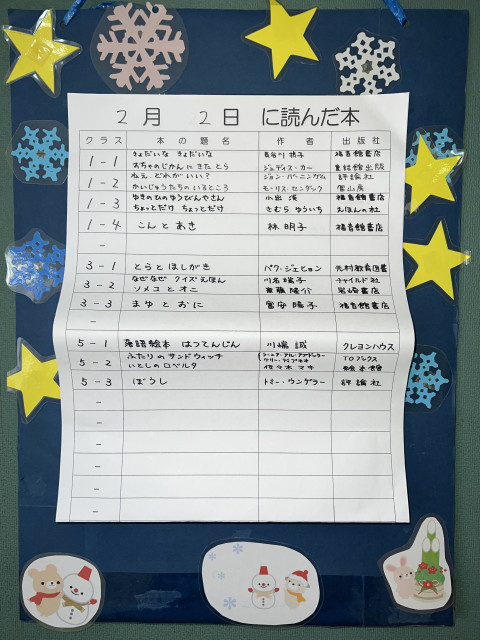 2月 2日 に読んだ本
クラス 本の題名 作者 出版社
1-1 きょだいな きょだいな 長谷川 摂子 福音館書店
おちゃのじかんにきたとら ジュディス・カー 童話館出版
1-2 ねえ、どれがいい? ジョン・バーニンガム 評論社
かいじゅうたちのいるところ モーリス・センダック 冨山房
1-3 ゆきのひのゆうびんやさん 小出 淡 福音館書店
ちょっとだけ ちょっとだけ きむら ゆういち えほんの杜
1-4 こんとあき 林 明子 福音館書店
-
3-1 とらとほしがき パク・ジェヒョン 光村教育図書
3-2 なぜなぜ クイズえほん 川名 瑞子 チャイルド社
ソメコとオニ 斎藤 隆介 岩崎書店
3-3 まゆとおに 富安 陽子 福音館書店
-
5-1 落語絵本 はつてんじん 川端 誠 クレヨンハウス
5-2 ふたりのサンドウィッチ TOブックス
いとしのロベルタ 佐々木 マキ 絵本館
5-3 ぼうし トミー・ウンゲラー 評論社
-
-
-
-
-
-